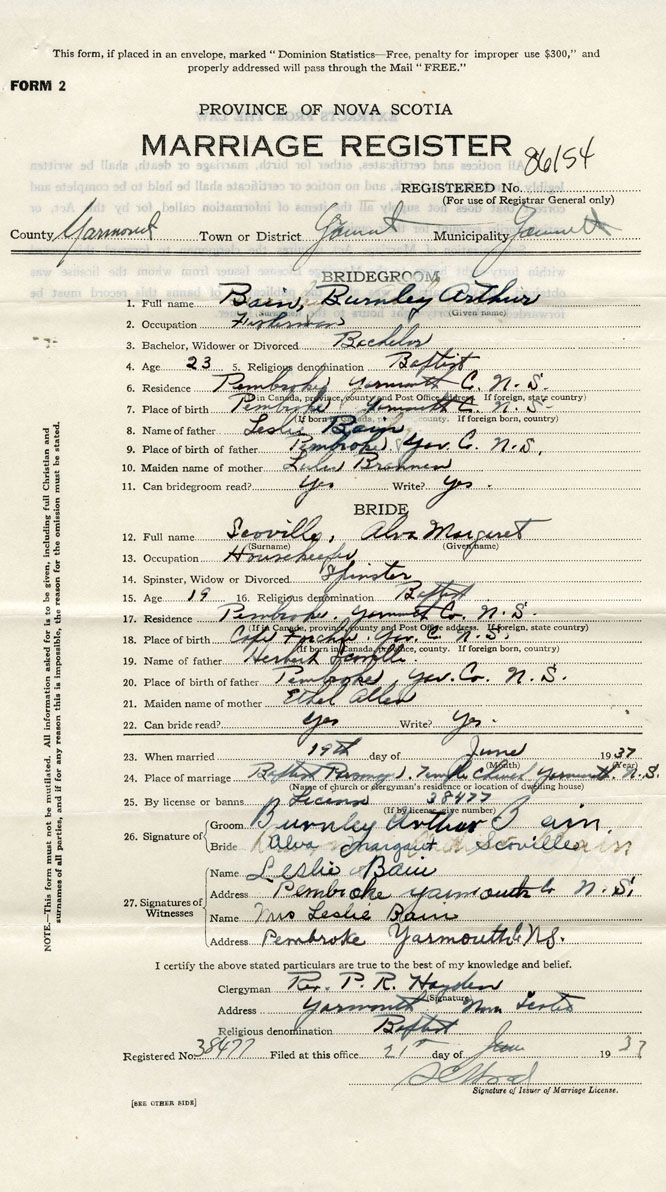 This form, if placed in an envelope, marked "Dominion Statistics—Free, penalty for improper use $300," and
properly addressed will pass through the Mail "FREE."
FORM 2
PROVINCE OF NOVA SCOTIA
MARRIAGE REGISTER
86154
REGISTERED No.
(For use of Registrar General only)
County Yarmouth Town or District Municipality
BRIDEGROOM
1. Full name Bain, Burnley Arthur
(Surname) (Given name)
2. Occupation Fisherman
3. Bachelor, Widower or Divorced Bachelor
4. Age 23 5. Religious denomination Baptist
6. Residence Pembroke, Yarmouth C. N.S.
(If in Canada, province, county and Post Office address. If foreign, state country)
7. Place of birth Pembroke, Yarmouth C. N.S.
(If born in Canada, province, county. If foreign, foreign country)
8. Name of father Leslie Bain
9. Place of birth of father Pembroke, Yar. C. N.S.
10. Maiden name of mother
11. Can bridegroom read? Yes Write? Yes.
BRIDE
12. Full name Scoville, Alva Margaret
(Surname) (Given name)
13. Occupation Housekeeper
14. Spinster, Widow or Divorced Spinster
15. Age 19 16. Religious denomination Baptist
17. Residence Pembroke, Yarmouth Co. N.S.
(If in Canada, province, county and Post Office address. If foreign, state country)
18. Place of birth Cape Forchu, Yar. C. N.S.
(If born in Canada, province, county. If foreign, foreign country)
19. Name of father Herbert Scoville.
20. Place of birth of father Pembroke, Yar. Co. N.S.
21. Maiden name of mother Ethel Allen
22. Can bride read? Yes Write? Yes.
23. When married 19th day of June 1937
(Month) (Year)
24. Place of marriage Baptist Parsonage, Temple Church Yarmouth N.S.
(Name of church or clergyman's residence or location of dwelling house)
25. By license or banns License 38477
(If by license, give number)
26. Signature of Groom Burnley Arthur Bain
Bride Alva Margaret Scoville
27. Signatures of Witnesses
Name Leslie Bain
Address Pembroke Yarmouth Co N.S.
Name Mrs Leslie Bain
Address Pembroke Yarmouth Co N.S.
I certify the above stated particulars are true to the best of my knowledge and belief.
Clergyman Rev. P. R. Hayden
(Signature)
Address Yarmouth Nova Scotia
Religious denomination Baptist
Registered No. 38477 Filed at this office 21st day of June 1937
Signature of Issuer of Marriage License.
[SEE OTHER SIDE]
NOTE.—This form must not be mutilated. All information asked for is to be given, including full Christian and
surnames of all parties, and if for any reason this is impossible, the reason for the omission must be stated.